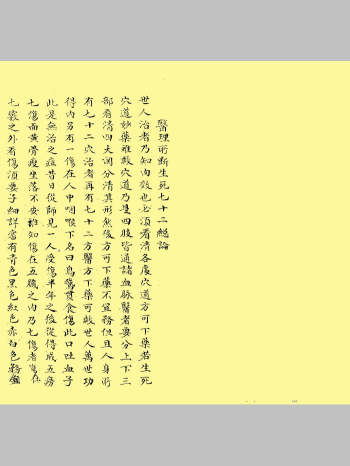 醫理所斷生死七十二總論
世人治者乃知內效也必須看清各處穴道方可下藥若生死
穴道妙藥難救穴道乃是四肢皆通諸血脉醫者要分上下三
部看清四大門分清真形然後方可下藥不宜務但且人身所
有七十二穴治者再有七十二方醫方下藥可救世人萬世功
得內另有一傷在人中咽喉下名曰烏鴉貫食傷此口吐血子
此是無治之症昔日從師見一人受傷半年之後從得成五癆
七傷面黃骨瘦坐落不安雖知傷在五臟之內乃七傷者在
七竅之外看傷須要子細詳當有青色黑色紅色赤白色